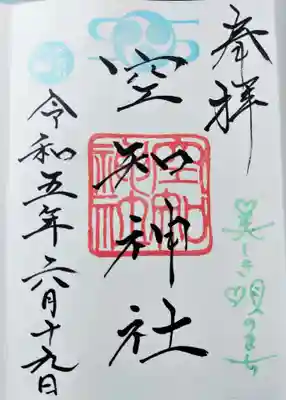 奉拝
美しき唄のまち
空知神社
空知神社
令和五年六月十九日